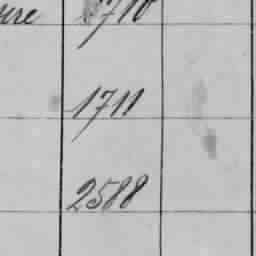 1710
1711
2588